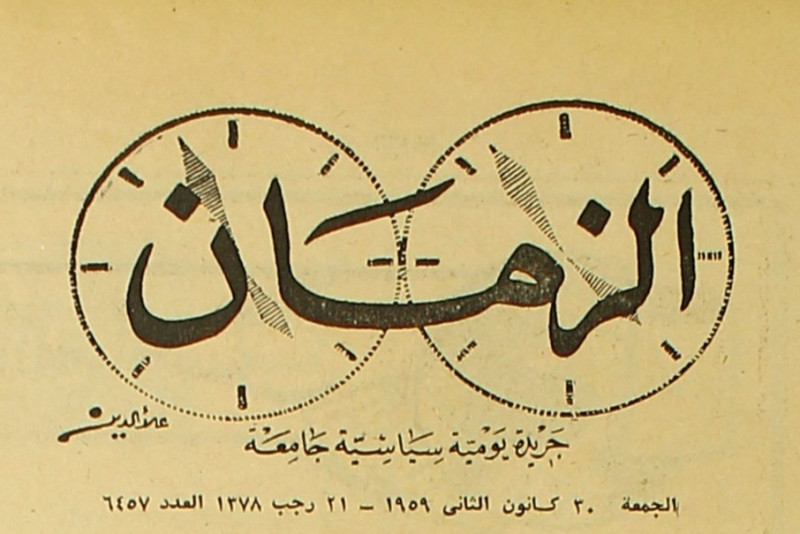 الزمان
علاء الدين
جَريْدة يَوْميّة سِيَاسِيّة جَامِعَة
الجمعة ٣٠ كانون الثانى ١٩٥٩ – ٢١ رجب ١٣٧٨ العدد ٦٤٥٧